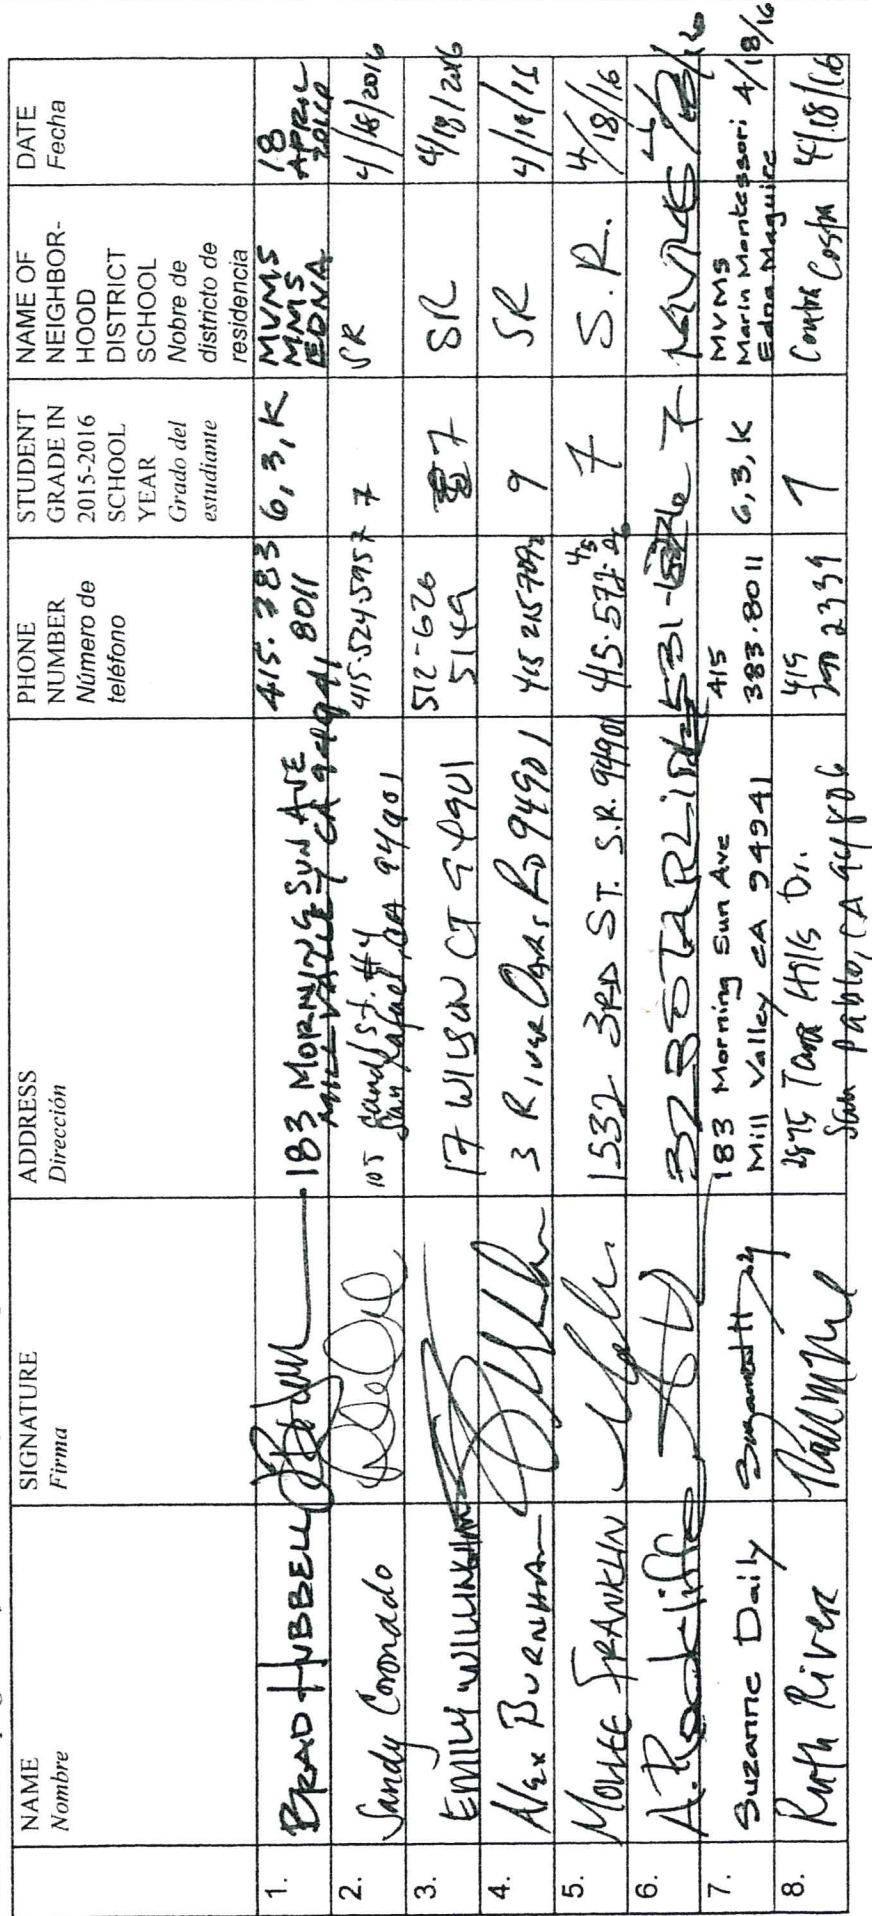 NAME
Nombre
SIGNATURE
Firma
ADDRESS
Dirección
PHONE
NUMBER
Número de
teléfono
STUDENT
GRADE IN
2015-2016
SCHOOL
YEAR
Grado del
estudiante
NAME OF
NEIGHBOR-
HOOD
DISTRICT
SCHOOL
Nobre de
districto de
residencia
DATE
Fecha
1.
BRAD HUBBELL
183 MORNING SUN AVE
MILL VALLEY CA 94941
415. 383
8011
6, 3, K
MVMS
MMS
EDNA
18
APRIL
2016
2.
Sandy Coronado
105 St. #4
San Rafael, CA 94901
415.524.5957
7
SR
4/18/2016
3.
EMILY WILLINGHAM
17 WILSON CT 94901
512-626
5149
7
SR
4/18/2016
4.
Alex BURNHAM
3 RIVER OAKS RD 94901
415 215 7092
9
SR
4/18/16
5.
MOLLEE FRANKLIN
1532 3RD ST. S.R. 94901
415.572.
7
S.R.
4/18/16
6.
A. Rockliffe
323 STARLING
531-
7
7.
Suzanne Daily
183 Morning Sun Ave
Mill Valley CA 94941
415
383.8011
6, 3, K
MVMS
Marin Montessori
Edna Maguire
4/18/16
8.
Ruth River
2875 Tara Hills Dr.
San Pablo, CA 94806
415
2339
7
Contra Costa
4/18/16